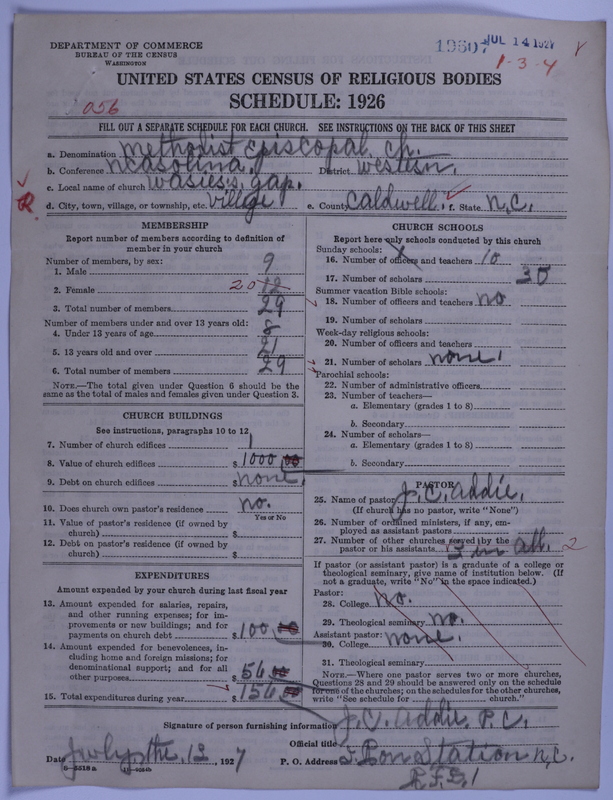 DEPARTMENT OF COMMERCE
BUREAU OF THE CENSUS
WASHINGTON
19507 JUL 14 1927
1-3-4
UNITED STATES CENSUS OF RELIGIOUS BODIES
SCHEDULE: 1926
056
FILL OUT A SEPARATE SCHEDULE FOR EACH CHURCH. SEE INSTRUCTIONS ON THE BACK OF THIS SHEET
a. Denomination Methodist Episcopal Ch.
b. Conference N Carolina. District Western.
c. Local name of church gap.
d. City, town, village, or township, etc. village e. County Caldwell. f. State N.C.
MEMBERSHIP
Report number of members according to definition of member in your church
Number of members, by sex:
1. Male 9
2. Female 20 12
3. Total number of members 29
Number of members under and over 13 years old:
4. Under 13 years of age 8
5. 13 years old and over 21
6. Total number of members 29
NOTE.—The total given under Question 6 should be the same as the total of males and females given under Question 3.
CHURCH BUILDINGS
See instructions, paragraphs 10 to 12
7. Number of church edifices 1
8. Value of church edifices $ 1000 00
9. Debt on church edifices $ none.
10. Does church own pastor's residence no.
Yes or No
11. Value of pastor's residence (if owned by church) $
12. Debt on pastor's residence (if owned by church) $
EXPENDITURES
Amount expended by your church during last fiscal year
13. Amount expended for salaries, repairs, and other running expenses; for improvements or new buildings; and for payments on church debt $ 100 00
14. Amount expended for benevolences, including home and foreign missions; for denominational support; and for all other purposes $ 54 00
15. Total expenditures during year $ 154 00
CHURCH SCHOOLS
Report here only schools conducted by this church
Sunday schools:
16. Number of officers and teachers 10
17. Number of scholars 30
Summer vacation Bible schools:
18. Number of officers and teachers no
19. Number of scholars
Week-day religious schools:
20. Number of officers and teachers
21. Number of scholars none!
Parochial schools:
22. Number of administrative officers
23. Number of teachers—
a. Elementary (grades 1 to 8)
b. Secondary
24. Number of scholars—
a. Elementary (grades 1 to 8)
b. Secondary
PASTOR
25. Name of pastor J. C. Addie.
(If church has no pastor, write "None")
26. Number of ordained ministers, if any, employed as assistant pastors
27. Number of other churches served by the pastor or his assistants in all. 2
If pastor (or assistant pastor) is a graduate of a college or theological seminary, give name of institution below. (If not a graduate, write "No" in the space indicated.)
Pastor:
28. College no.
29. Theological seminary no.
Assistant pastor: none.
30. College
31. Theological seminary
NOTE.—Where one pastor serves two or more churches, Questions 28 and 29 should be answered only on the schedule for one of the churches; on the schedules for the other churches, write "See schedule for church."
Signature of person furnishing information J. C. Addie. P. C.
Official title
Date July, the, 12, 1927 P. O. Address Station N.C.
R.F.D. 1